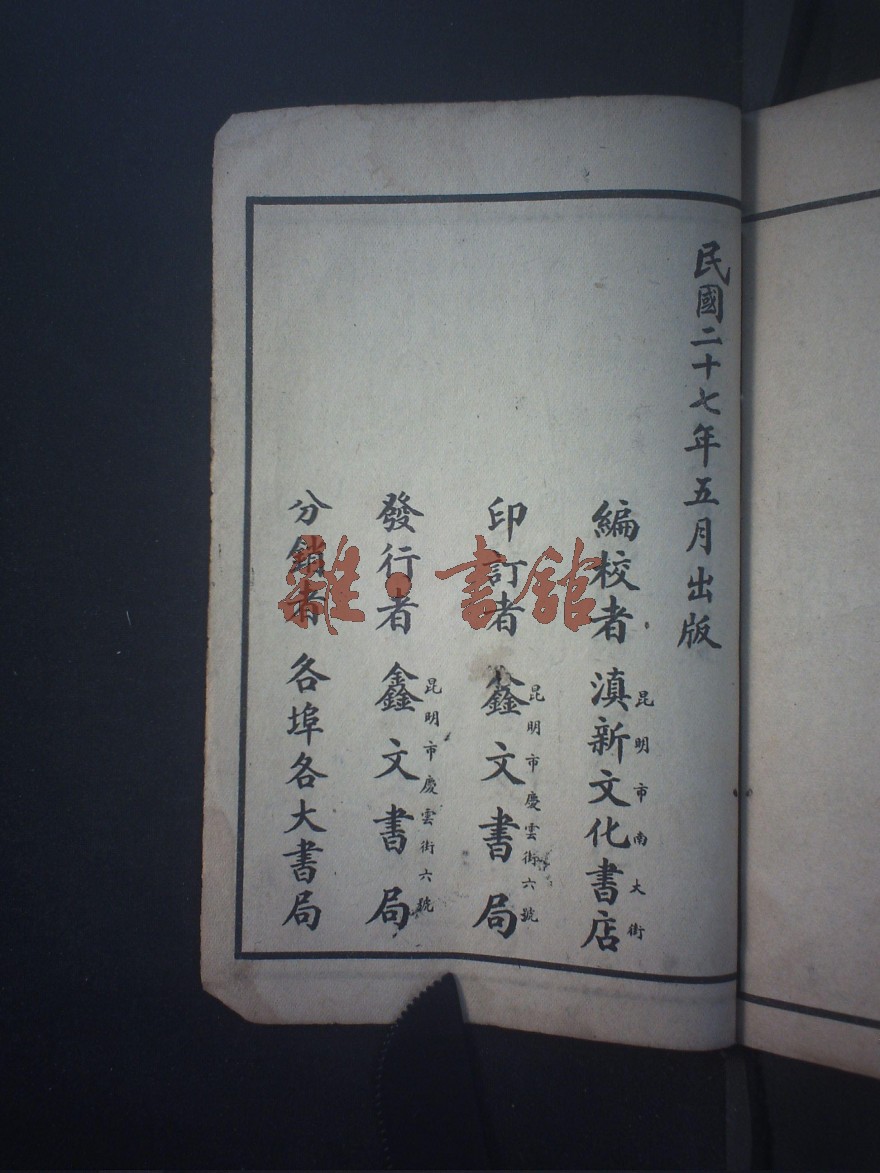 民國二十七年五月出版
編校者 滇新文化書店
昆明市南大街
印訂者 鑫文書局
昆明市慶雲街六號
發行者 鑫文書局
昆明市慶雲街六號
分銷者 各埠各大書局
雜·書館